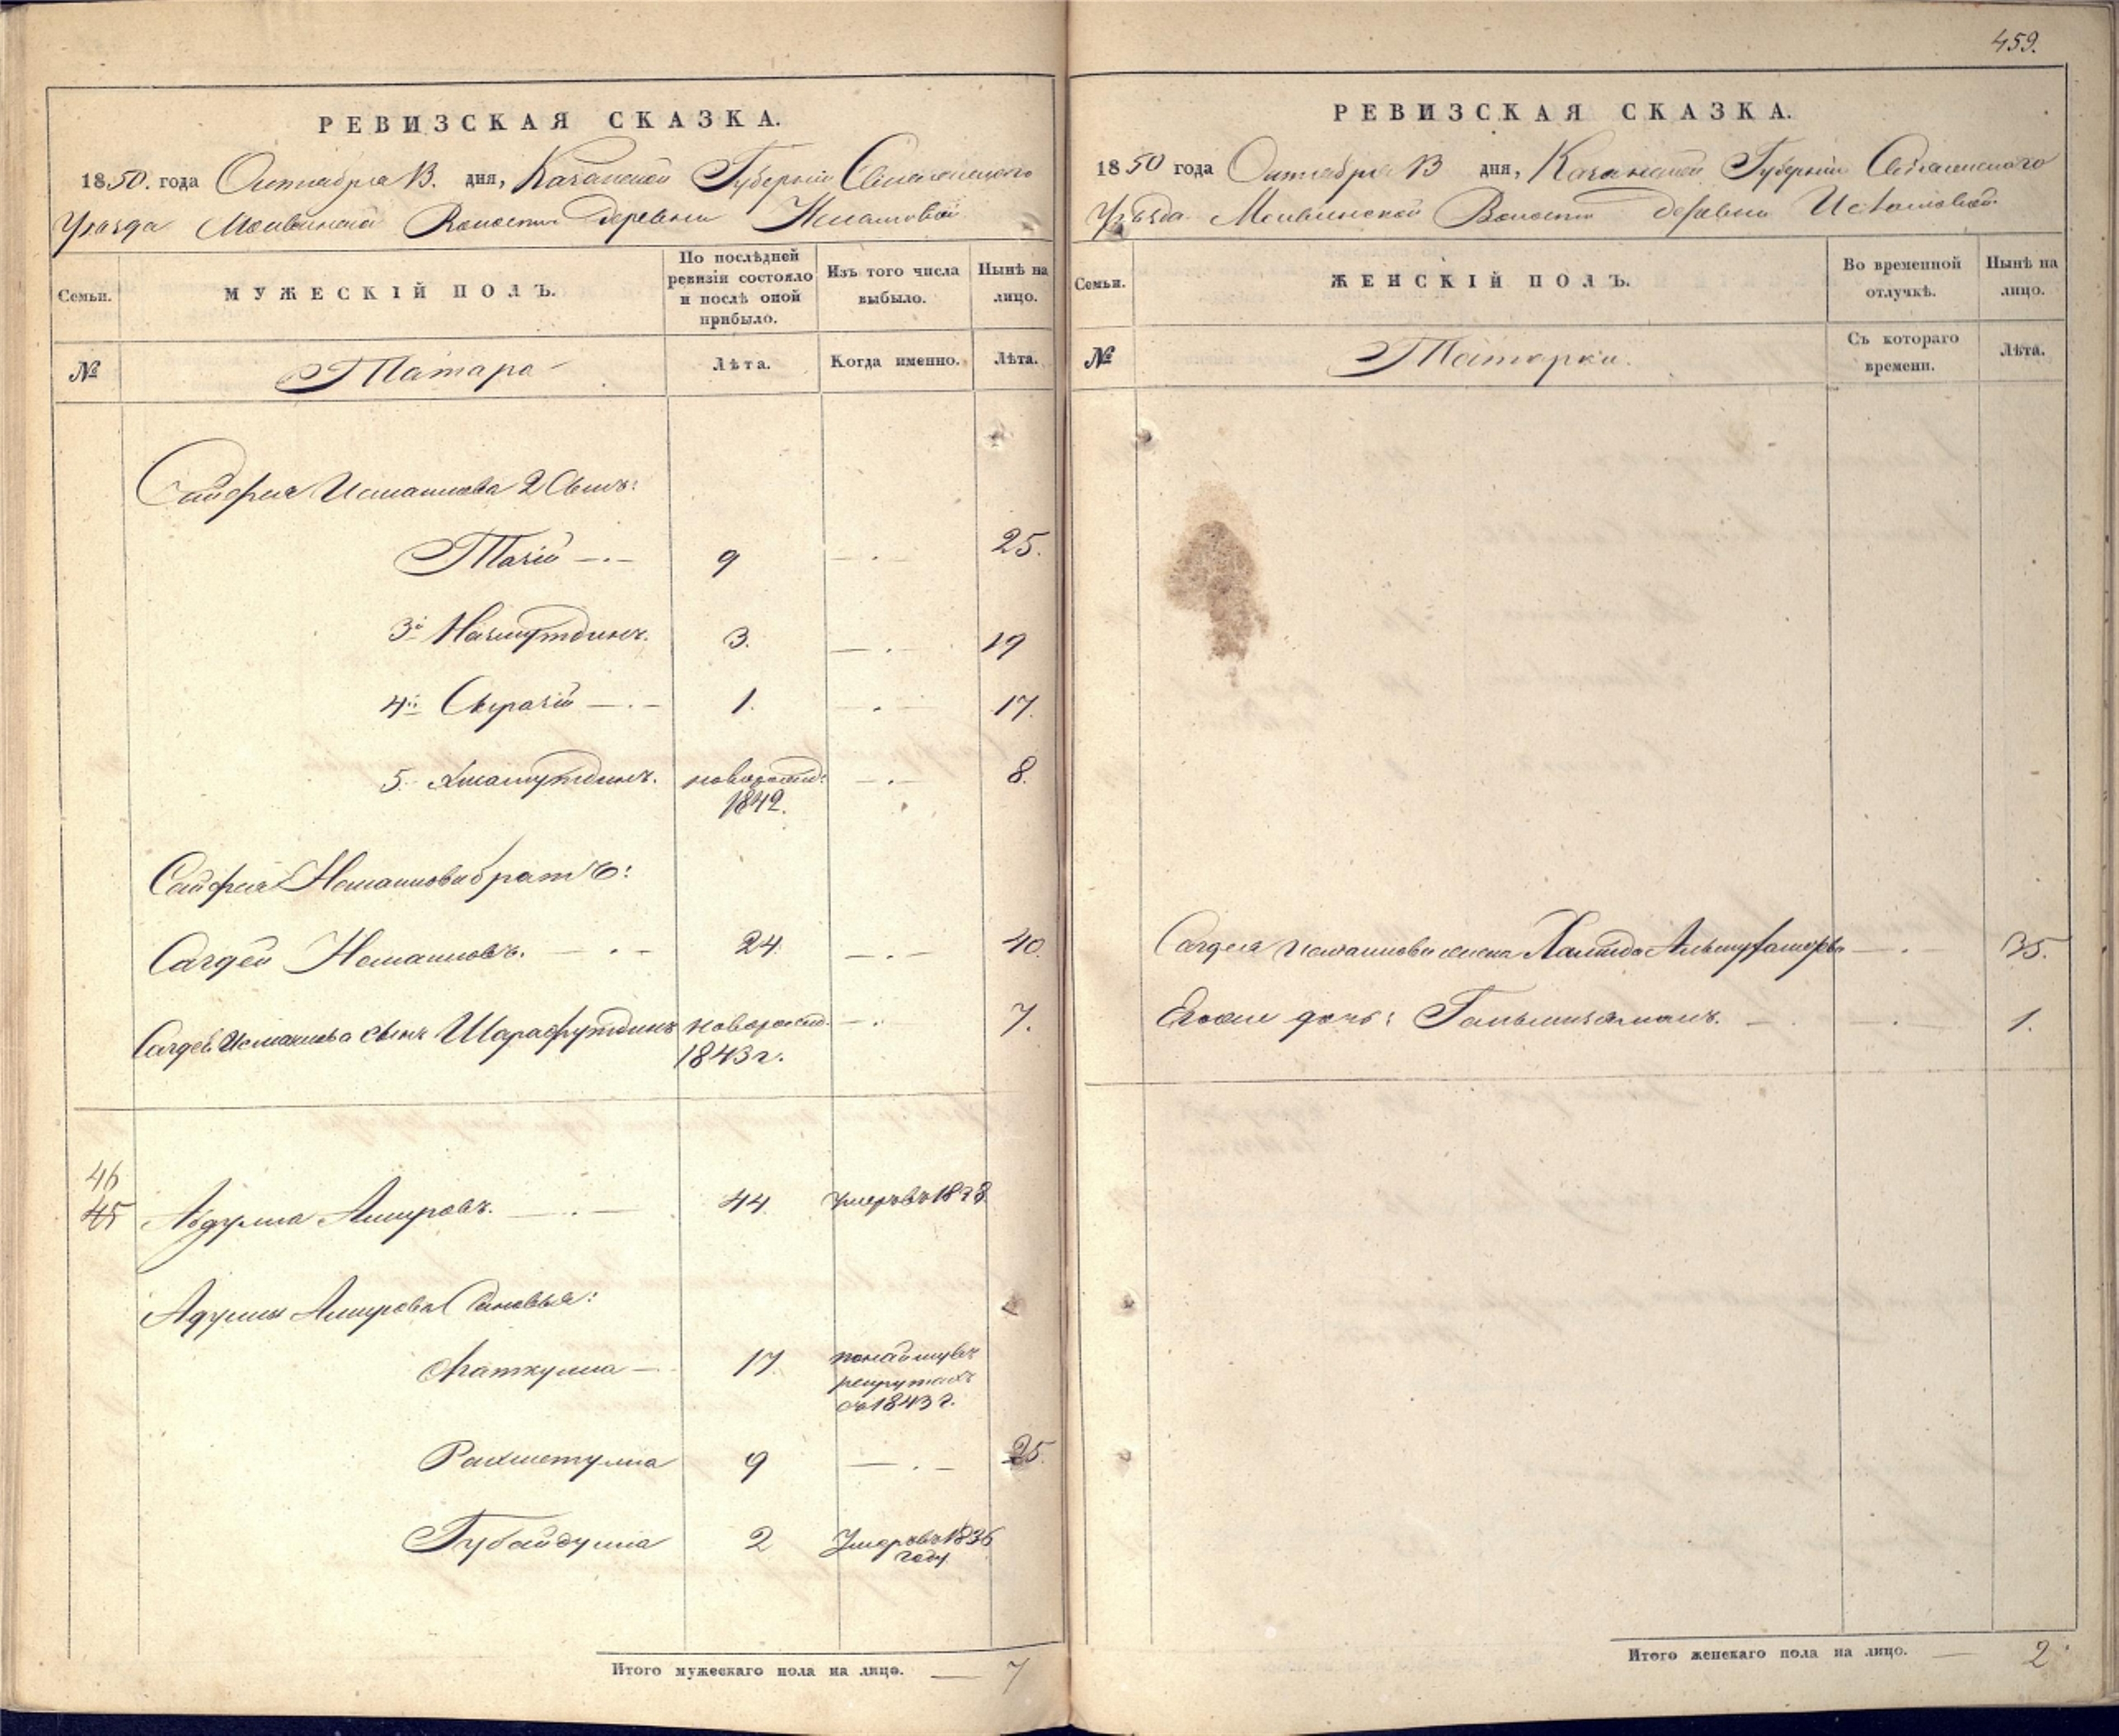 459.
РЕВИЗСКАЯ СКАЗКА.
1850. года Октября 13. дня, Казанской Губерніи Свіяжскаго
Уѣзда Волости деревни
Семьи.
МУЖЕСКІЙ ПОЛЪ.
По послѣдней ревизіи состояло и послѣ оной прибыло.
Изъ того числа выбыло.
Нынѣ на лицо.
№
Татара
Лѣта.
Когда именно.
Лѣта.
Сайфея Исмаилова 2 Сынъ:
Тазій — . — 9 — . 25.
3й Назмутдинъ. 3. — . — 19
4й Сиразій — . — 1. . — 17.
5. новорожд: — . — 8.
1842.
Сайфея Исмаилова братъ:
Сагдей Исмаиловъ. — . — 24. — . — 40.
Сагдея Исмаилова сынъ Шарафутдинъ новорожд. — . 7.
1843 г.
46
45 Абдулла Амировъ. — . — 44 умеръ въ 1838.
Абдуллы Амирова Сыновья:
17.
рекрутахъ
съ 1843 г.
Рахметулла 9 — . — 25.
Губайдулла 2 Умеръ въ 1836
году
Итого мужескаго пола на лицо. — 7
РЕВИЗСКАЯ СКАЗКА.
1850 года Октября 13 дня, Казанской Губерніи Свіяжскаго
Уѣзда Волости деревни
Семьи.
ЖЕНСКІЙ ПОЛЪ.
Во временной отлучкѣ.
Нынѣ на лицо.
№
Татарки.
Съ котораго времени.
Лѣта.
Сагдея Исмаилова жена Халида — . 35.
Его же дочь: — . — . — 1.
Итого женскаго пола на лицо. — 2